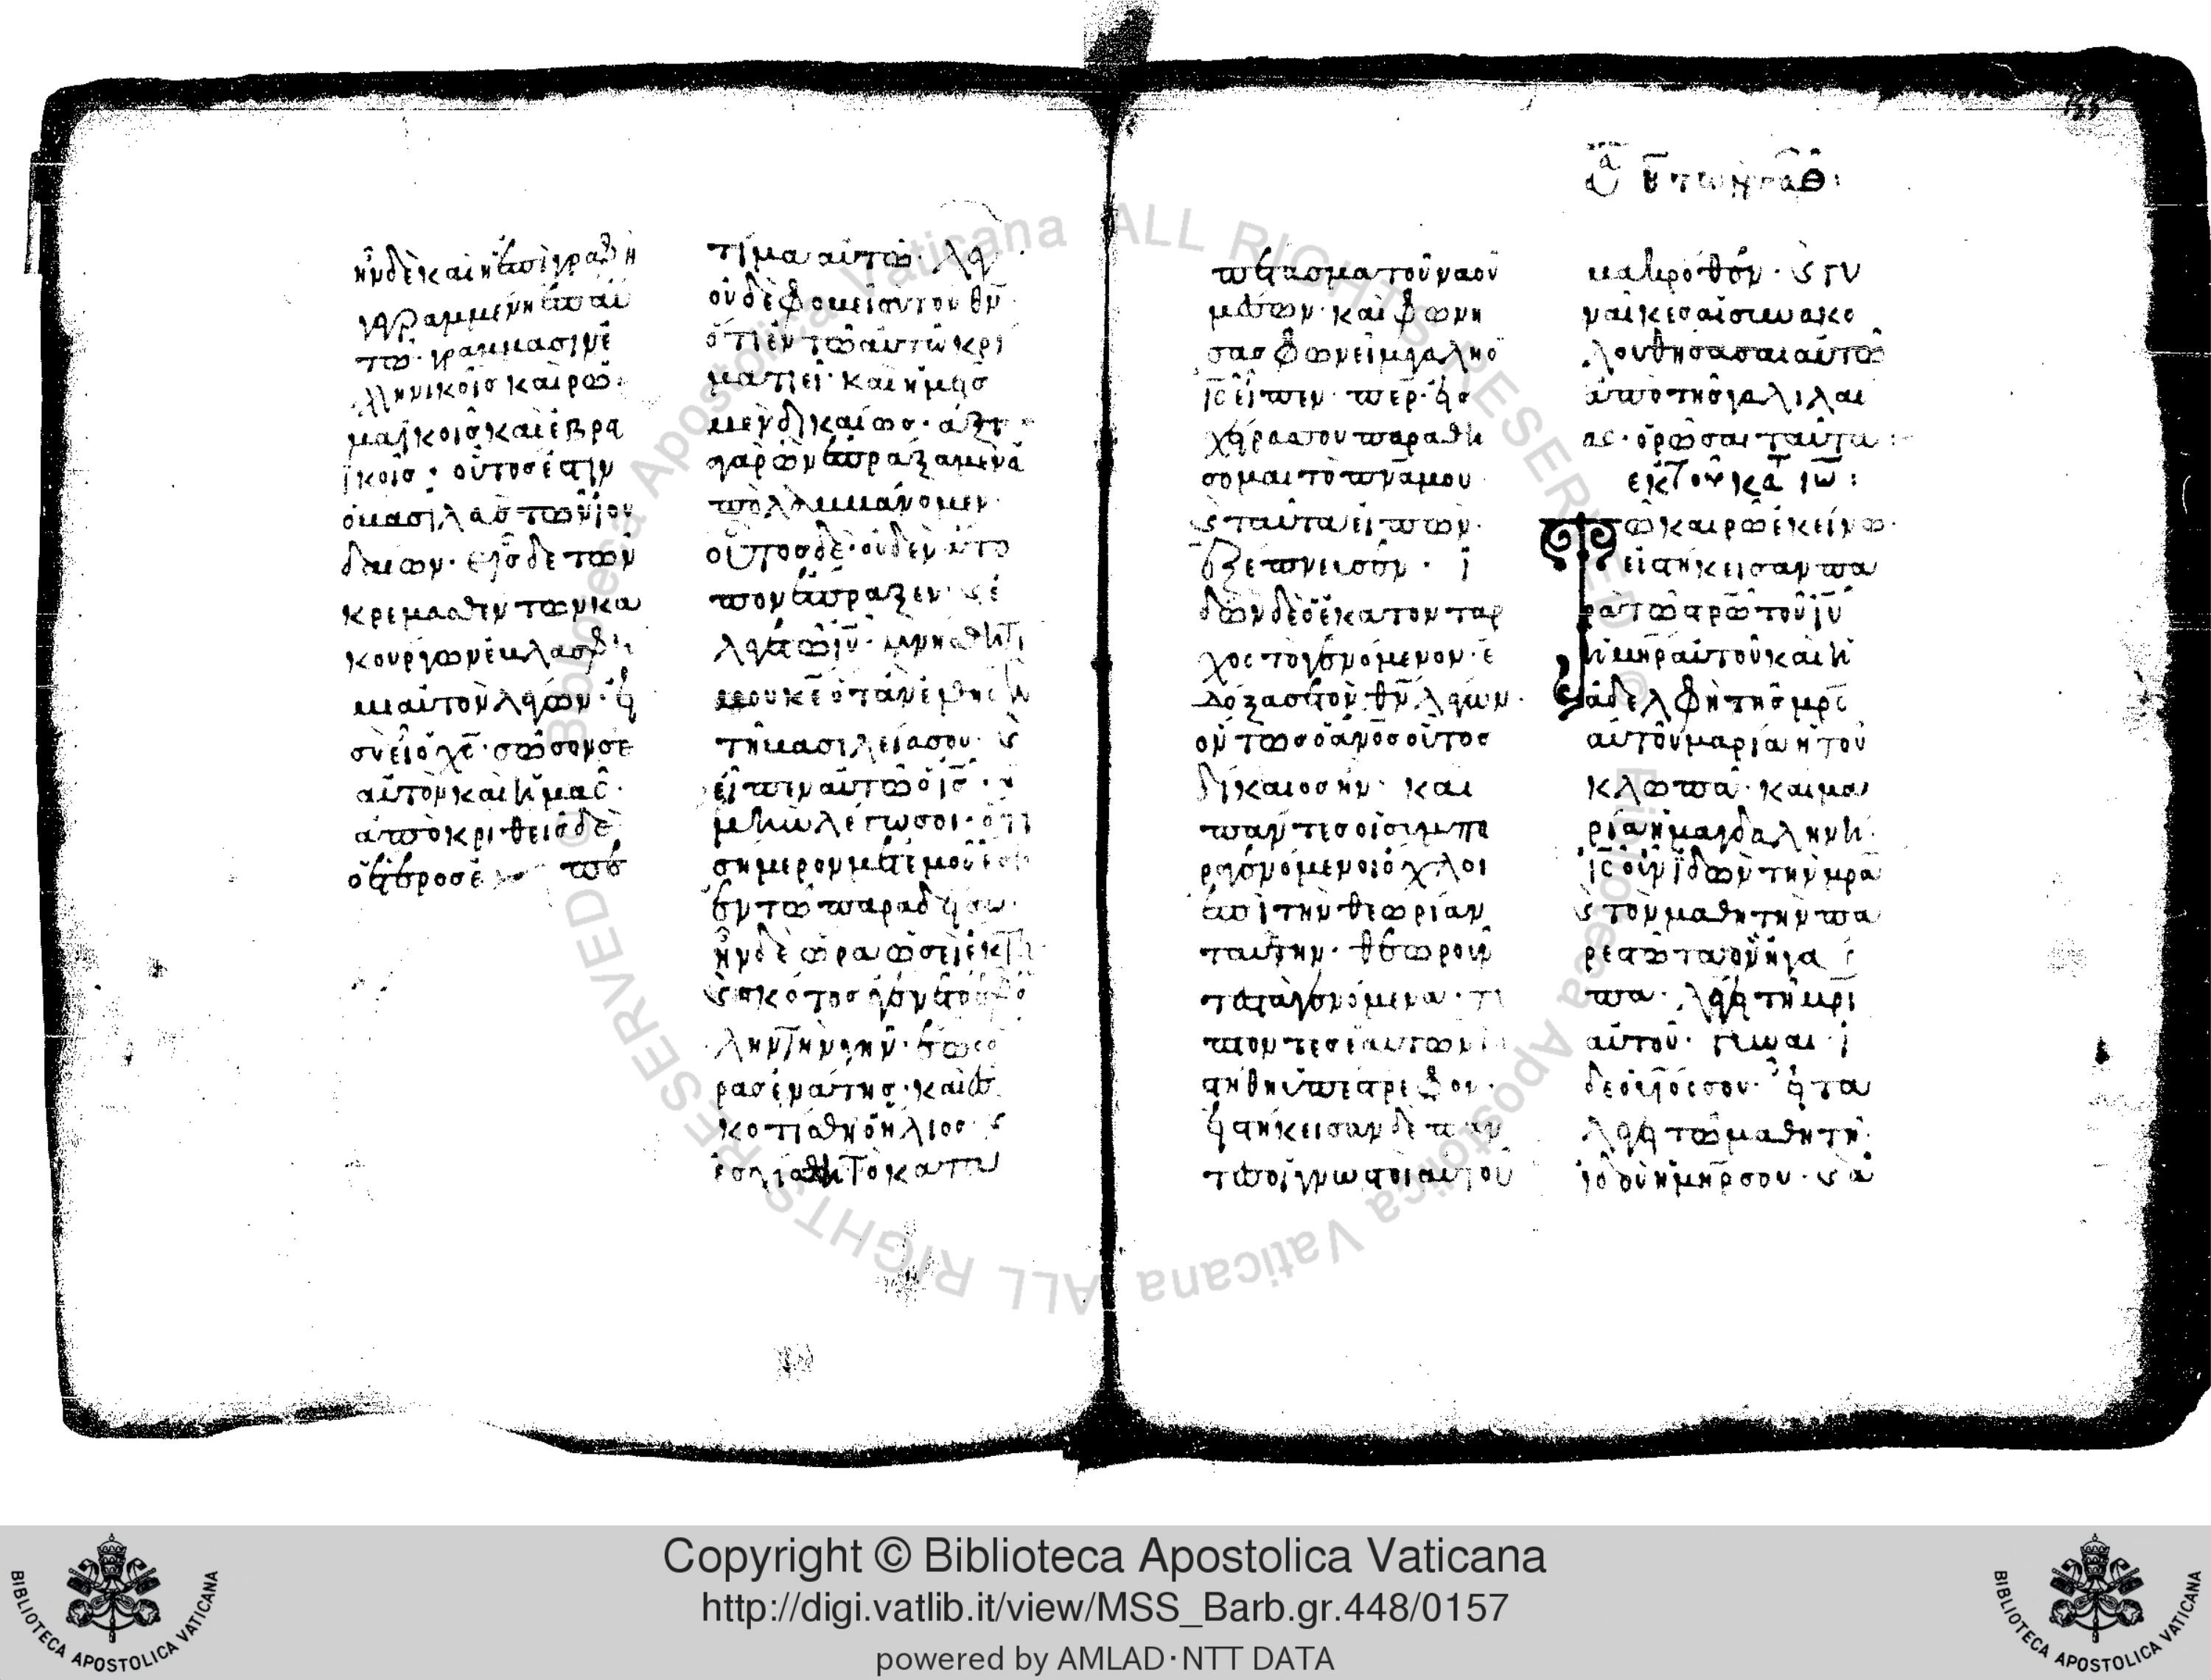 ην δὲ καὶ ἡ ἐπιγραφὴ
γεγραμμένη ἐπ αυ
τῶ γράμμασιν ἑ
λληνικοῖς καὶ ρω
μαϊκοῖς καὶ ἑβρα
ϊκοῖς οὗτος ἐστιν
ὁ βασιλεὺς τῶν ϊου
δαίων εἷς δὲ τῶν
κρεμασθέντων κα
κούργων ἐβλασφή
μει αὐτὸν λέγων εἰ
σὺ εἶ ὁ χς σῶσον σε
αὐτὸν καὶ ἡμᾶς
ἀποκριθεὶς δὲ
ὁ ἕτερος ἐπε
τίμα αὐτῶ λέγων
οὐδὲ φοβεῖ συ τὸν θν
ὅτι ἐν τῶ αὐτῶ κρί
ματι εἶ καὶ ἡμεῖς
μὲν δικαίως ἄξια
γὰρ ὧν ἐπράξαμεν ἀ
πολαμβάνομεν
οὗτος δὲ οὐδὲν ἄτο
πον ἔπραξεν καὶ ἔ
λεγε τῶ ιυ μνήσθητί
μου κε ὅταν ἔλθης ἐν
τῆ βασιλεία σου καὶ
εἶπεν αὐτῶ ὁ ις ἀ
μὴν λέγω σοι ὅτι
σήμερον μετ ἐμοῦ ἔση
ἐν τῶ παραδείσω
ἦν δὲ ὥρα ὡσεὶ ἕκτη
καὶ σκότος ἐγένετο ἐφ ὅ
λην τὴν γην ἕως ὥ
ρας ἐνάτης καὶ ἐσ
κοτίσθη ὁ ἥλιος καὶ
ἐσχίσθη τὸ κατα
πέτασμα τοῦ ναοῦ
μέσον καὶ φωνή
σας φωνῆ μεγάλη ὁ
ις εἶπεν περ εἰς
χεῖράς σου παραθή
σομαι τὸ πνα μου
καὶ ταῦτα εἰπὼν
ἐξέπνευσεν ἰ
δὼν δὲ ὁ ἑκατόνταρ
χος τὸ γενόμενον ἐ
δόξασε τὸν θν λέγων
ὄντως ὁ ανος οὗτος
δίκαιος ἦν καὶ
πάντες οἱ συμπα
ραγενόμενοι ὄχλοι
ἐπὶ τὴν θεωρίαν
ταύτην θεωροῦν
τες τὰ γενόμενα τύ
πτοντες ἑαυτῶν τὰ
στήθη ὑπέστρεφον
εἱστήκεισαν δὲ πάν
τες οἱ γνωστοὶ αὐτοῦ
μακρόθεν καὶ γυ
ναῖκες αἱ συνακο
λουθήσασαι αὐτῶ
ἀπὸ τῆς γαλιλαί
ας ὁρῶσαι ταῦτα:
ἐκ τοῦ κατ ιω:
Τῶ καιρῶ ἐκείνω
εἱστήκεισαν πα
ρὰ τῶ στρῶ τοῦ ιυ
ἡ μηρ αὐτοῦ καὶ ἡ
ἀδελφὴ τῆς μρς
αὐτοῦ μαρία ἡ τοῦ
κλωπᾶ καὶ μα
ρία ἡ μαγδαληνή
ις οὖν ἰδὼν τὴν μρα
καὶ τὸν μαθητὴν πα
ρεστῶτα ὃν ἠγά
πα λέγει τῆ μρι
αὐτοῦ γύναι ἴ
δε ὁ υἱός σου εἶτα
λέγει τῶ μαθητῆ
ἰδοὺ ἡ μηρ σου καὶ ἀ
Copyright © Biblioteca Apostolica Vaticana
http://digi.vatlib.it/view/MSS_Barb.gr.448/0157
powered by AMLAD·NTT DATA
BIBLIOTECA APOSTOLICA VATICANA
BIBLIOTECA APOSTOLICA VATICANA